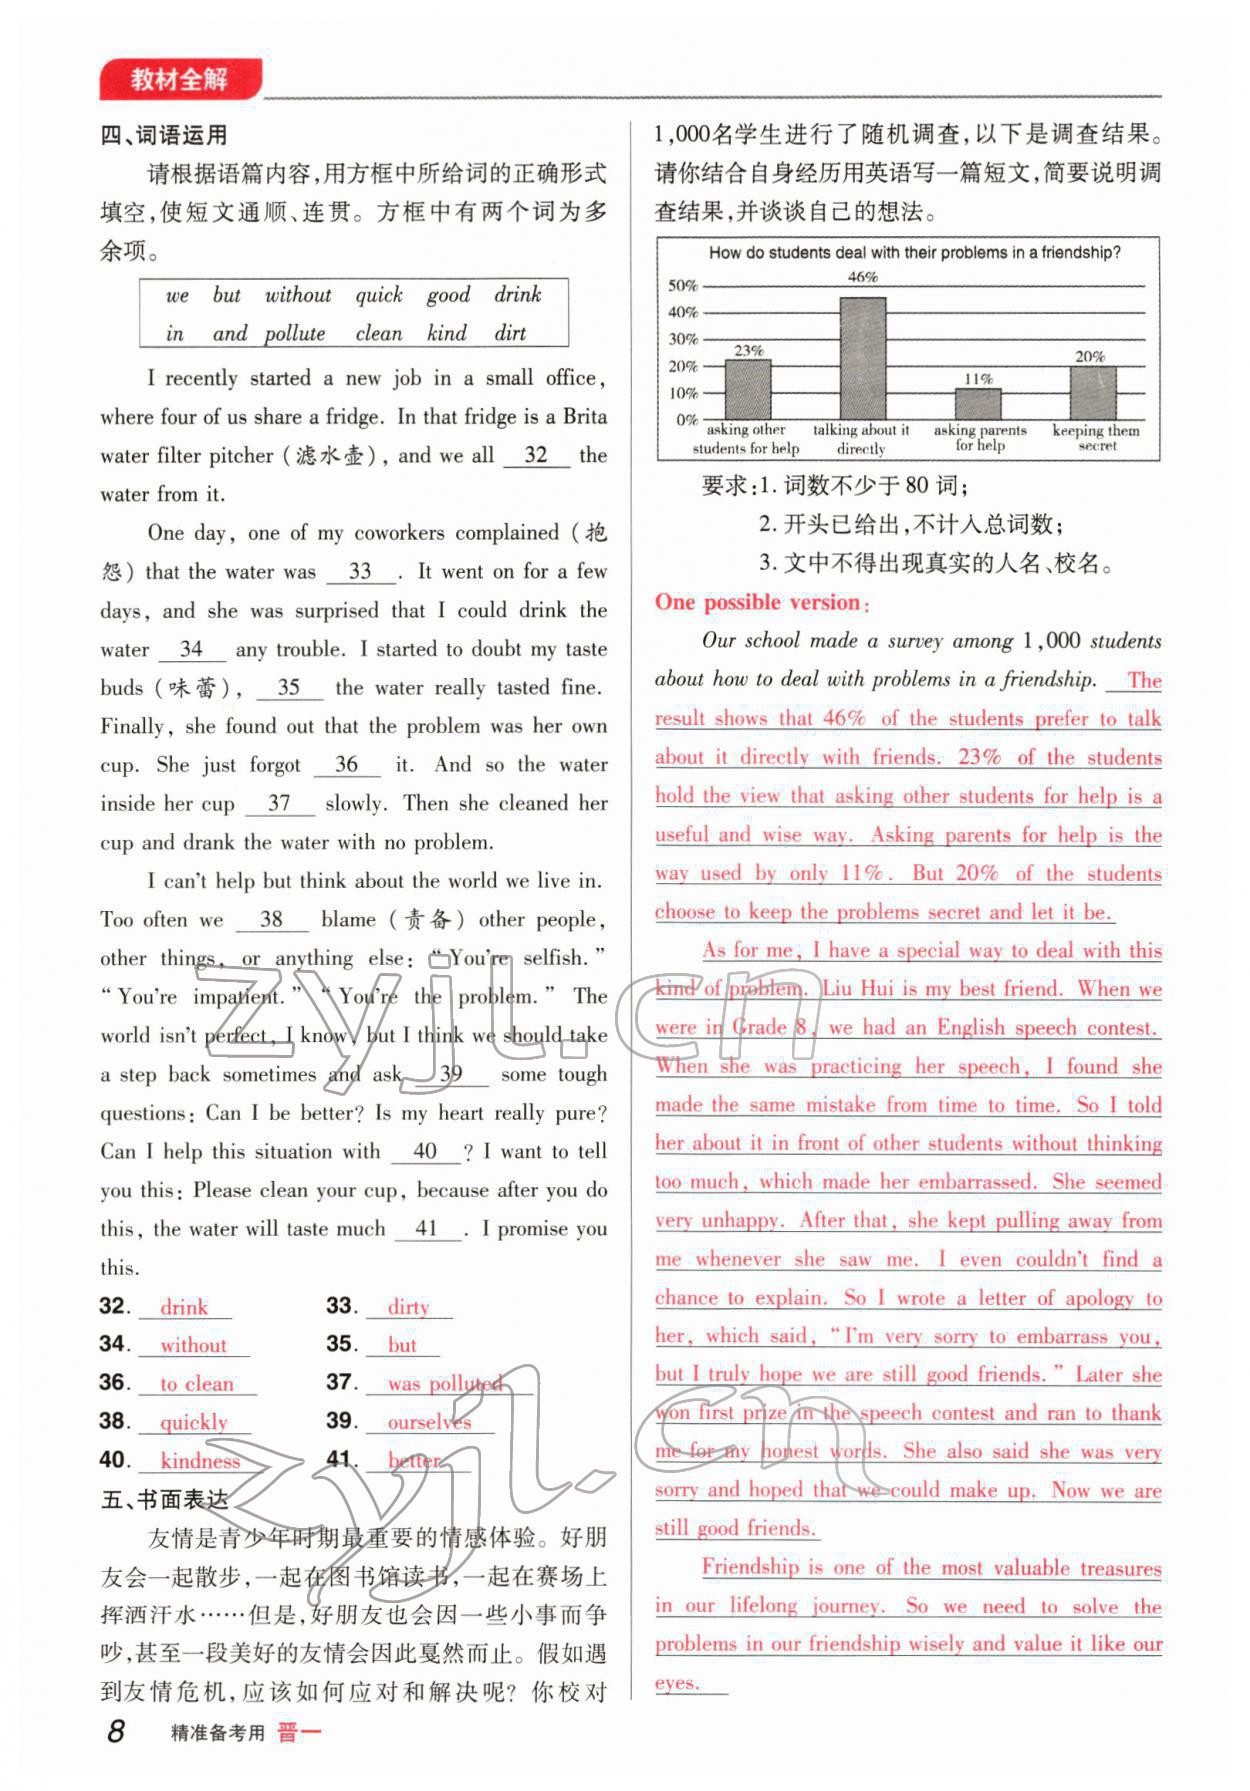 教材全解
四、词语运用
请根据语篇内容,用方框中所给词的正确形式
填空,使短文通顺、连贯。方框中有两个词为多
余项。
we but without quick good drink
in and pollute clean kind dirt
I recently started a new job in a small office,
where four of us share a fridge. In that fridge is a Brita
water filter pitcher (滤水壶), and we all 32 the
water from it.
One day, one of my coworkers complained (抱
怨) that the water was 33 . It went on for a few
days, and she was surprised that I could drink the
water 34 any trouble. I started to doubt my taste
buds (味蕾), 35 the water really tasted fine.
Finally, she found out that the problem was her own
cup. She just forgot 36 it. And so the water
inside her cup 37 slowly. Then she cleaned her
cup and drank the water with no problem.
I can't help but think about the world we live in.
Too often we 38 blame (责备) other people,
other things, or anything else: "You're selfish."
"You're impatient." "You're the problem." The
world isn't perfect, I know, but I think we should take
a step back sometimes and ask 39 some tough
questions: Can I be better? Is my heart really pure?
Can I help this situation with 40 ? I want to tell
you this: Please clean your cup, because after you do
this, the water will taste much 41 . I promise you
this.
32. drink 33. dirty
34. without 35. but
36. to clean 37. was polluted
38. quickly 39. ourselves
40. kindness 41. better
五、书面表达
友情是青少年时期最重要的情感体验。好朋
友会一起散步,一起在图书馆读书,一起在赛场上
挥洒汗水……但是,好朋友也会因一些小事而争
吵,甚至一段美好的友情会因此戛然而止。假如遇
到友情危机,应该如何应对和解决呢?你校对
1,000名学生进行了随机调查,以下是调查结果。
请你结合自身经历用英语写一篇短文,简要说明调
查结果,并谈谈自己的想法。
How do students deal with their problems in a friendship?
50%
40%
30%
20%
10%
0%
23%
46%
11%
20%
asking other
students for help
talking about it
directly
asking parents
for help
keeping them
secret
要求:1. 词数不少于 80 词;
2. 开头已给出,不计入总词数;
3. 文中不得出现真实的人名、校名。
One possible version:
Our school made a survey among 1,000 students
about how to deal with problems in a friendship. The
result shows that 46% of the students prefer to talk
about it directly with friends. 23% of the students
hold the view that asking other students for help is a
useful and wise way. Asking parents for help is the
way used by only 11%. But 20% of the students
choose to keep the problems secret and let it be.
As for me, I have a special way to deal with this
kind of problem. Liu Hui is my best friend. When we
were in Grade 8, we had an English speech contest.
When she was practicing her speech, I found she
made the same mistake from time to time. So I told
her about it in front of other students without thinking
too much, which made her embarrassed. She seemed
very unhappy. After that, she kept pulling away from
me whenever she saw me. I even couldn't find a
chance to explain. So I wrote a letter of apology to
her, which said, "I'm very sorry to embarrass you,
but I truly hope we are still good friends." Later she
won first prize in the speech contest and ran to thank
me for my honest words. She also said she was very
sorry and hoped that we could make up. Now we are
still good friends.
Friendship is one of the most valuable treasures
in our lifelong journey. So we need to solve the
problems in our friendship wisely and value it like our
eyes.
8 精准备考用 晋一
zyjl.cn
zyjl.cn